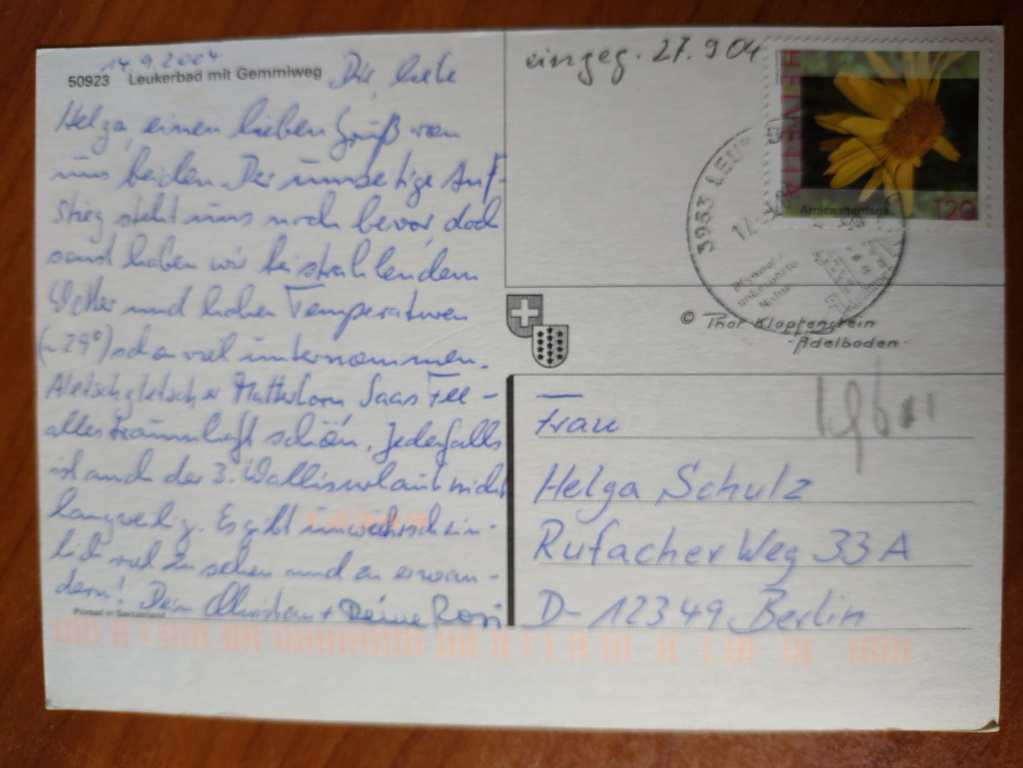 14.9.2004
50923 Leukerbad mit Gemmiweg
Dir, liebe
Helga, einen lieben Gruß von
uns beiden. Der umseitige Auf-
stieg steht uns noch bevor, doch
sonst haben wir bei strahlendem
Wetter und hohen Temperaturen
(~ 29°) schon viel unternommen.
Aletschgletscher Matterhorn Saas Fee -
alles traumhaft schön. Jedenfalls
ist auch der 3. Wallisurlaub nicht
langweilig. Es gibt unwahrschein-
lich viel zu sehen und zu erwan-
dern! Dein Christian + Deine Rosi
Printed in Switzerland
eingeg. 27.9.04
HELVETIA
Arnica montana
120
3953 LEUK
17.
© Thor Klopfenstein
- Adelboden -
Frau
Helga Schulz
Rufacher Weg 33 A
D- 12349 Berlin